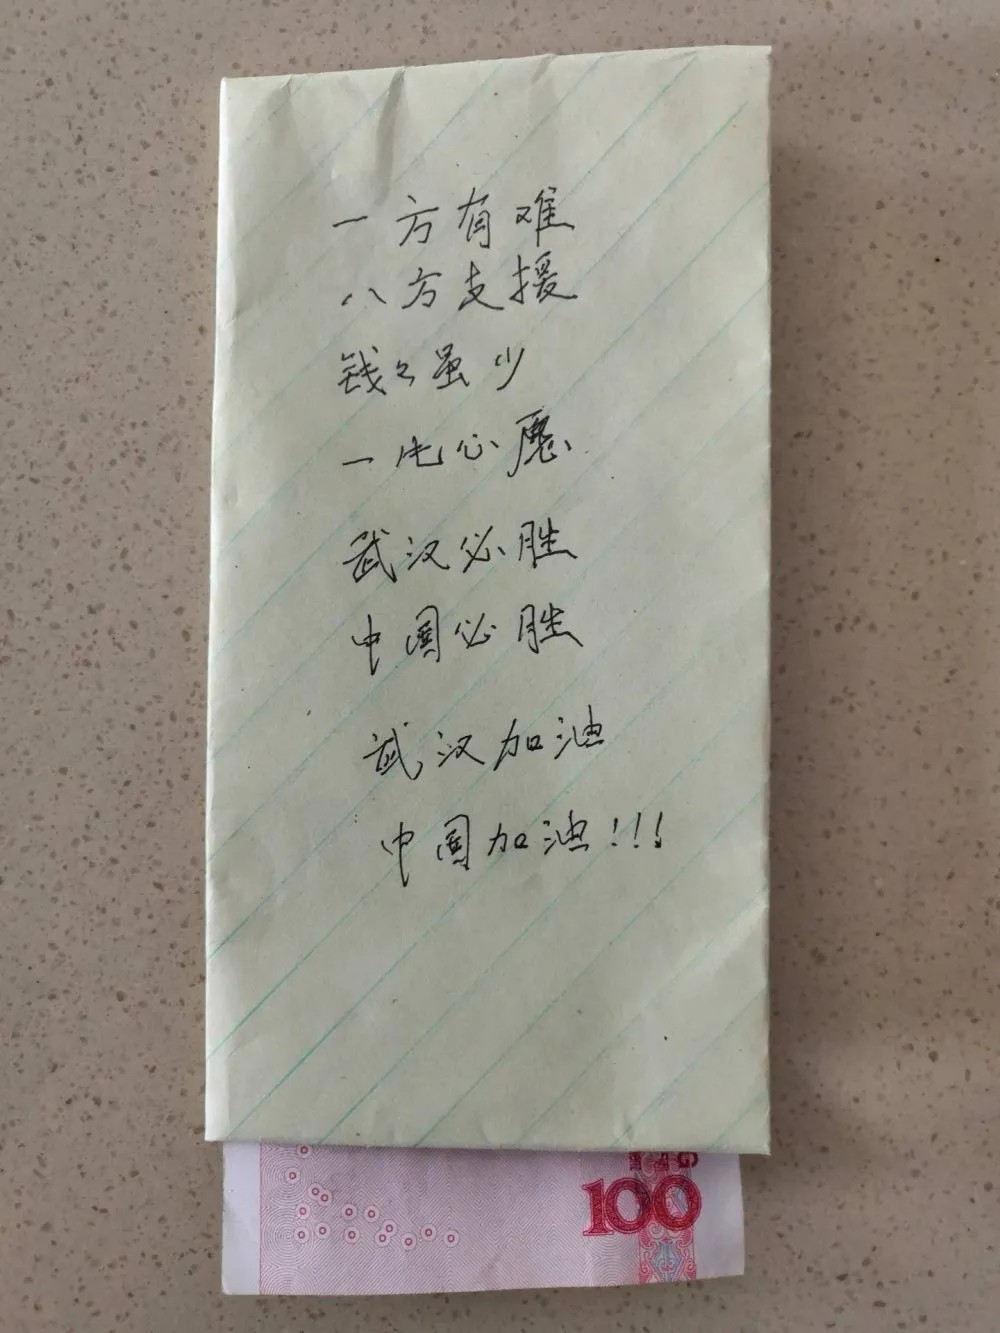 一方有难
八方支援
钱々虽少
一片心愿
武汉必胜
中国必胜
武汉加油
中国加油!!!
100